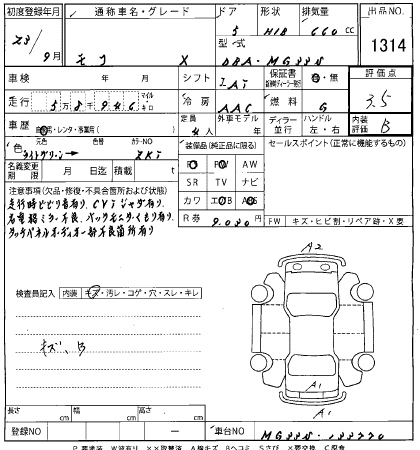 初度登録年月 通称車名・グレード ドア 形状 排気量 出品NO
23/ 5 H/B 660 cc
9月 モコ X 型式 DBA-MG33S 1314
車検 年 月 シフト IAT 保証書 有・無 評価点
走行 58946 マイル キロ 冷房 AAC 燃料 G 3.5
車歴 自家用・レンタ・事業用( ) 定員 4人 外車モデル ディーラー 並行 ハンドル 左・右 内装評価 B
色 元色 ライトグリーン→ カラーNO ZKT 装備品(純正品に限る) セールスポイント(正常に機能するもの)
名義変更期限 月 日迄 積載 PS PW AW
SR TV ナビ
注意事項(欠品・修復・不具合箇所および状態) カワ エアB ABS
走行時ビビリ音有り、CVTジャダ有り、 R券 9.030円 FW キズ・ヒビ割・リペア跡・X要
右電格ミラー不良、バックモニタくもり有り
タッチパネルオーディオ一部不良箇所有り
A2
検査員記入 内装 キズ・汚レ・コゲ・穴・スレ・キレ
キズ、B
A1
A1
長さ cm 幅 cm 高さ cm
登録NO ― 車台NO MG33S-133770